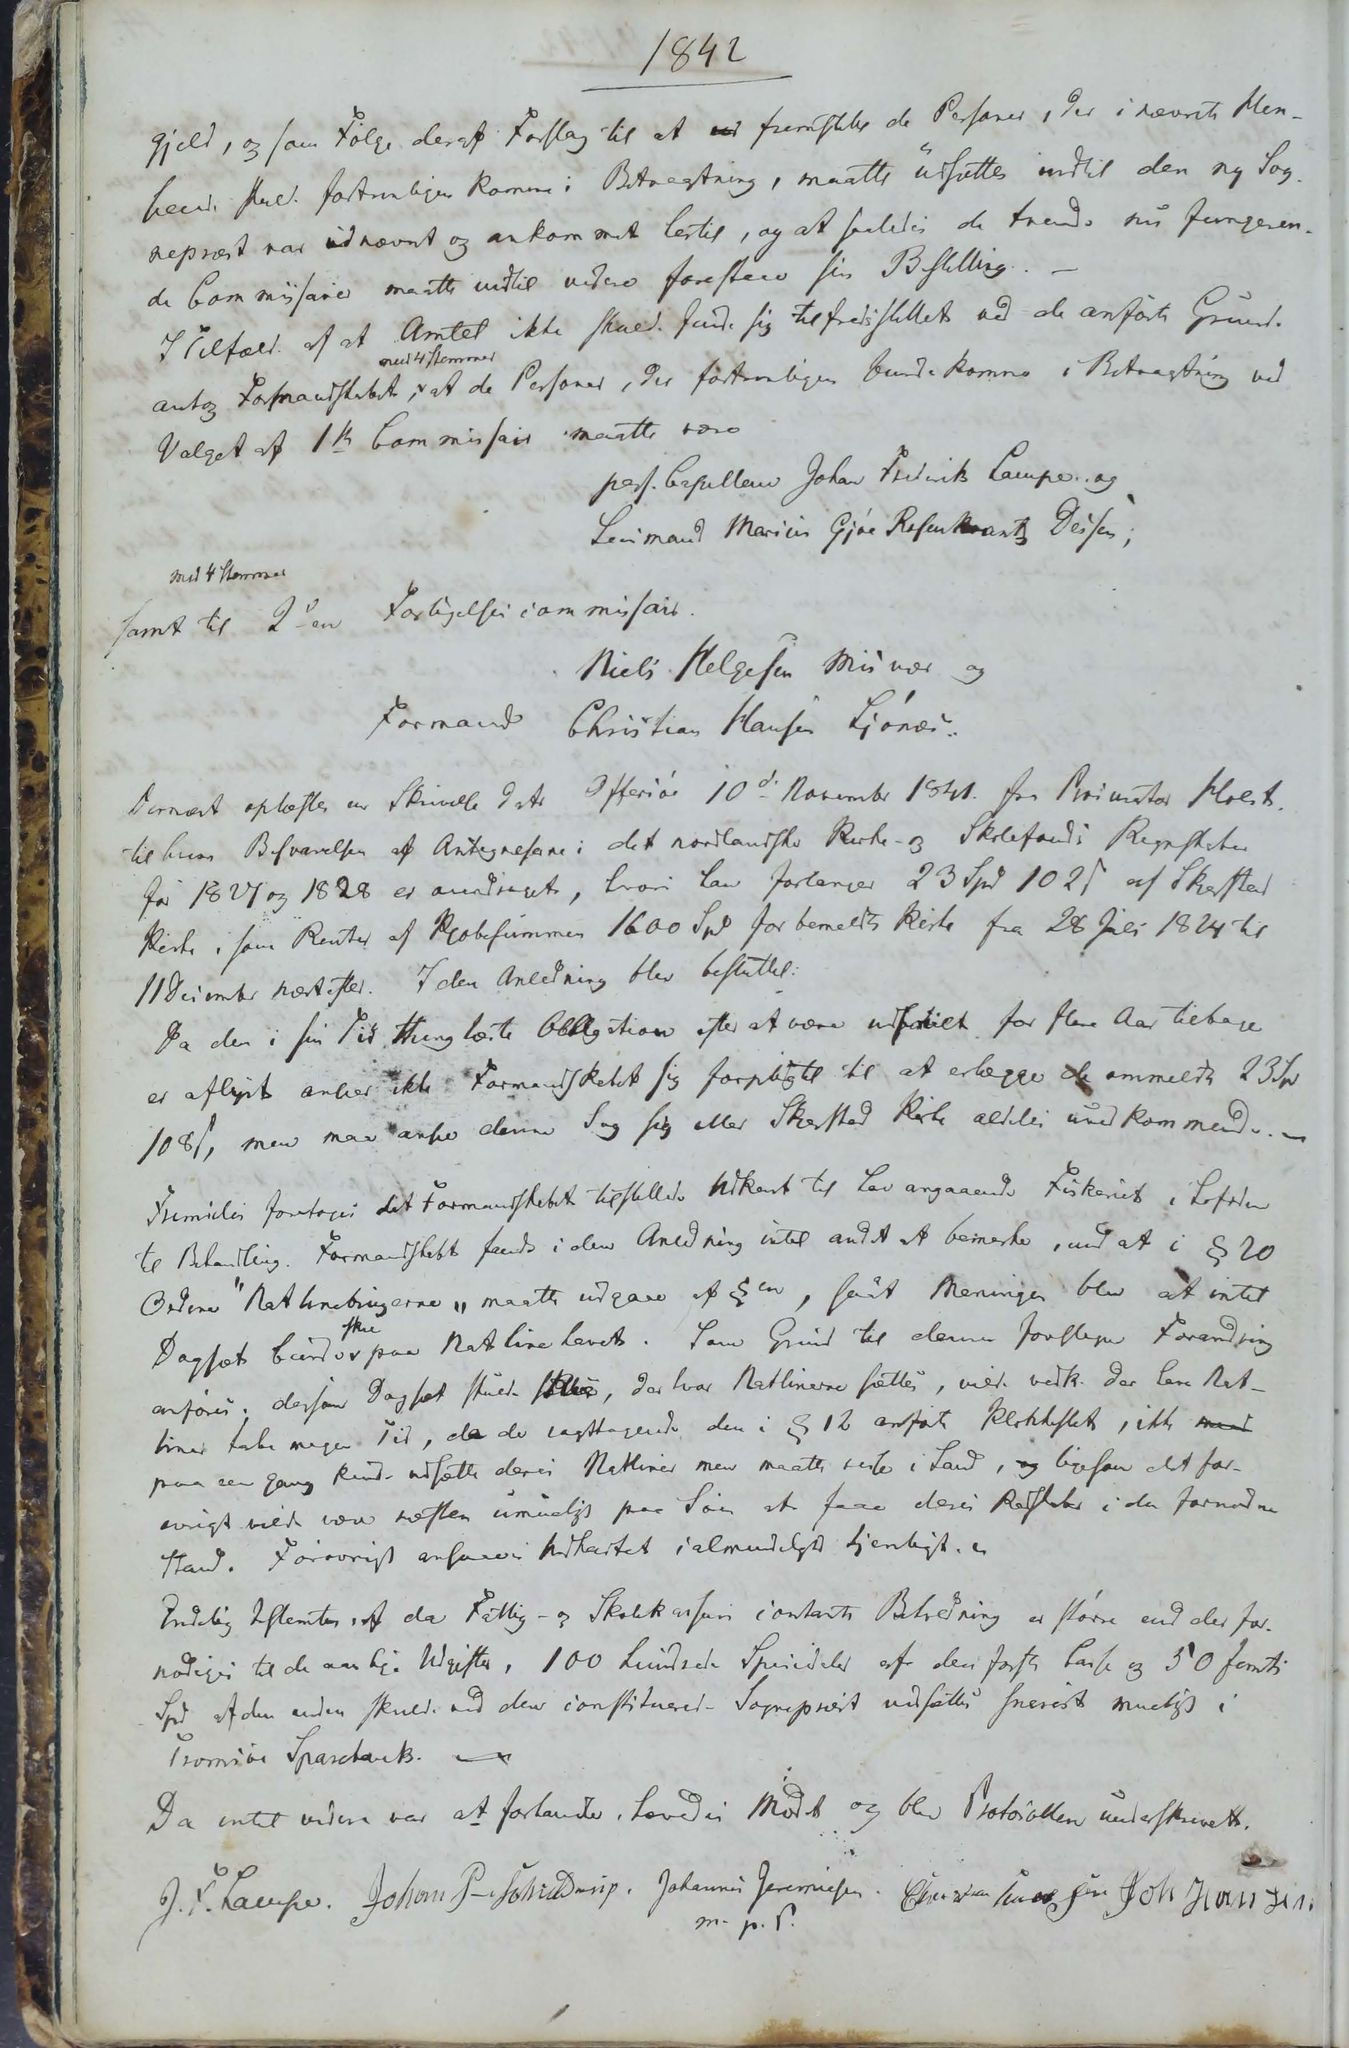 1842
gjeld, og som Følge deraf Forslag til at fremstille de Personer, der i nævnte Hen-
seende skulde fortrinligen komme i Betragtning, maatte udsættes indtil den ny Sog-
nepræst var udnævnt og ankommet hertil, og at saaledes de trende nu fungeren-
de Commissairer maatte indtil videre forestaae sin Bestilling. —
I Tilfælde af at Amtet ikke skulde finde sig tilfredsstillet ved de anførte Grunde
med 4 Stemmer
antog Formandskabet, at de Personer, der fortrinligen burde komme i Betragtning ved
Valget af 1ste Commissair maatte være
pers. Capellan Johan Frederik Lampe og
Lensmand Marius Gjøe Rosenkrantz Deisen;
med 4 Stemmer
samt til 2den Forligelsescommissair
Niels Helgesen Misvær og
Formand Christian Hansen Ljønæs.
Dernæst oplæstes en Skrivelse dat. Offersøe 10de November 1841 fra Procurator Holst,
til hvem Besvarelsen af Antegnelserne i det nordlandske Kirke- og Skolefonds Regnskaber
for 1827 og 1828 er overdraget, hvori han forlanger 23 Spd 102 ß af Skjerstad
Kirke, som Renter af Kjøbesummen 1600 Spd for bemeldte Kirke fra 28 Juli 1824 til
11 December næstefter. I den Anledning blev besluttet:
Da den i sin Tid thinglæste Obligation efter at være indfriet for flere Aar tilbage
er aflyst anseer ikke Formandskabet sig forpligtet til at erlægge de ommeldte 23 Sp
108 ß, men maa ansee denne Sag sig eller Skjerstad Kirke aldeles uvedkommende. —
Fremdeles foretoges det Formandskabet tilstillede Udkast til Lov angaaende Fiskeriet i Lofoden
til Behandling. Formandskabet fandt i den Anledning intet andet at bemærke, end at i § 20
Ordene "Natlinebrugerne" maatte udgaae af §en, saat Meningen blev at intet
skee
Dagsæt burde paa Natlinehavet. Som Grund til denne foreslagne Forandring
anføres: dersom Dagsæt skulde skee, der hvor Natlinerne sættes, vilde vedk. der have Nat-
liner tabe megen Tid, da de iagttagende den i § 12 anførte Klokkeslet, ikke
paa een gang kunde udsætte deres Natliner men maatte reise i Land, og ligesom det for-
øvrigt vilde være næsten umueligt paa Søen at faae deres Redskaber i den fornødne
Stand. Forøvrigt ansaaes Udkastet i almindelighed tjenligt.
Endelig bestemtes, at da Fattig- og Skolekassens contante Beholdning er større end der for-
nødiges til de aarlige Udgifter, 100 hundrede Speciedaler af den første Casse og 50 femti
Spd af den anden skulde ved den constituerede Sognepræst udsættes snarest mueligt i
Tromsøe Sparebank. —
Da intet videre var at forhandle, hævedes Mødet og blev Protocollen underskrevet.
J. F. Lampe. Johan P. Schieldrup. Johannes Jeremiasen. Christian Hansen Joh Hansen
m. p. P.